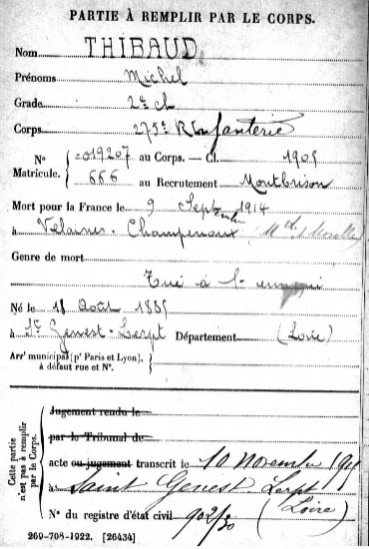 PARTIE À REMPLIR PAR LE CORPS.
Nom THIBAUD
Prénoms Michel
Grade 2e cl
Corps 275e R Infanterie
N° Matricule. 019207 au Corps. — Cl. 1905
666 au Recrutement Montbrison
Mort pour la France le 9 Septembre 1914
à Velaines - Champenoux Mthe Moselle
Genre de mort
Tué à l'ennemi
Né le 18 Août 1885
à St Genest-Lerpt Département (Loire)
Arrt municipal (pr Paris et Lyon),
à défaut rue et N°.
Cette partie n'est pas à remplir par le Corps.
Jugement rendu le
par le Tribunal de
acte ou jugement transcrit le 10 Novembre
à Saint Genest-Lerpt
(Loire)
N° du registre d'état civil 902/30
269-708-1922. [26434]